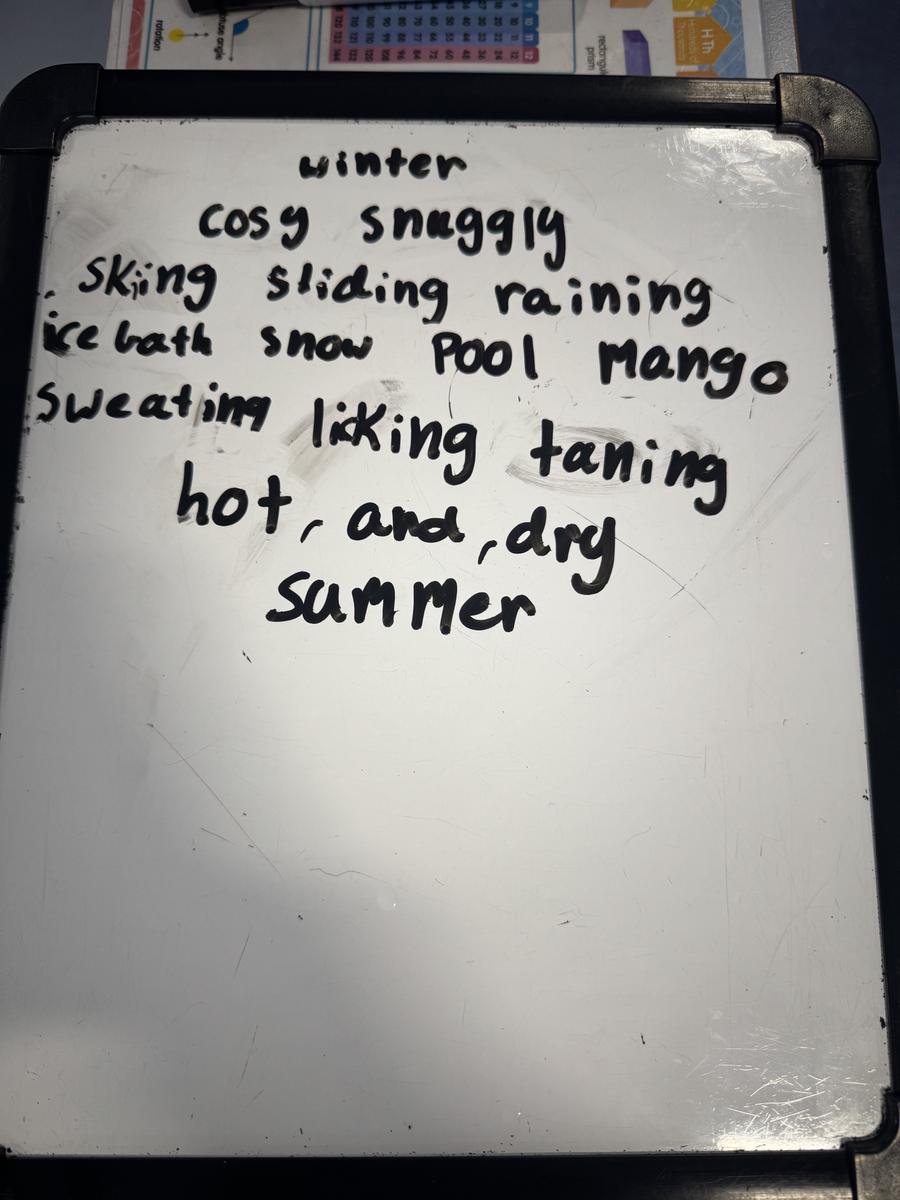 winter
cosy snuggly
skiing sliding raining
ice bath snow Pool Mango
Sweating licking taning
hot, and, dry
summer
rotation
rectangu
prism
H Th